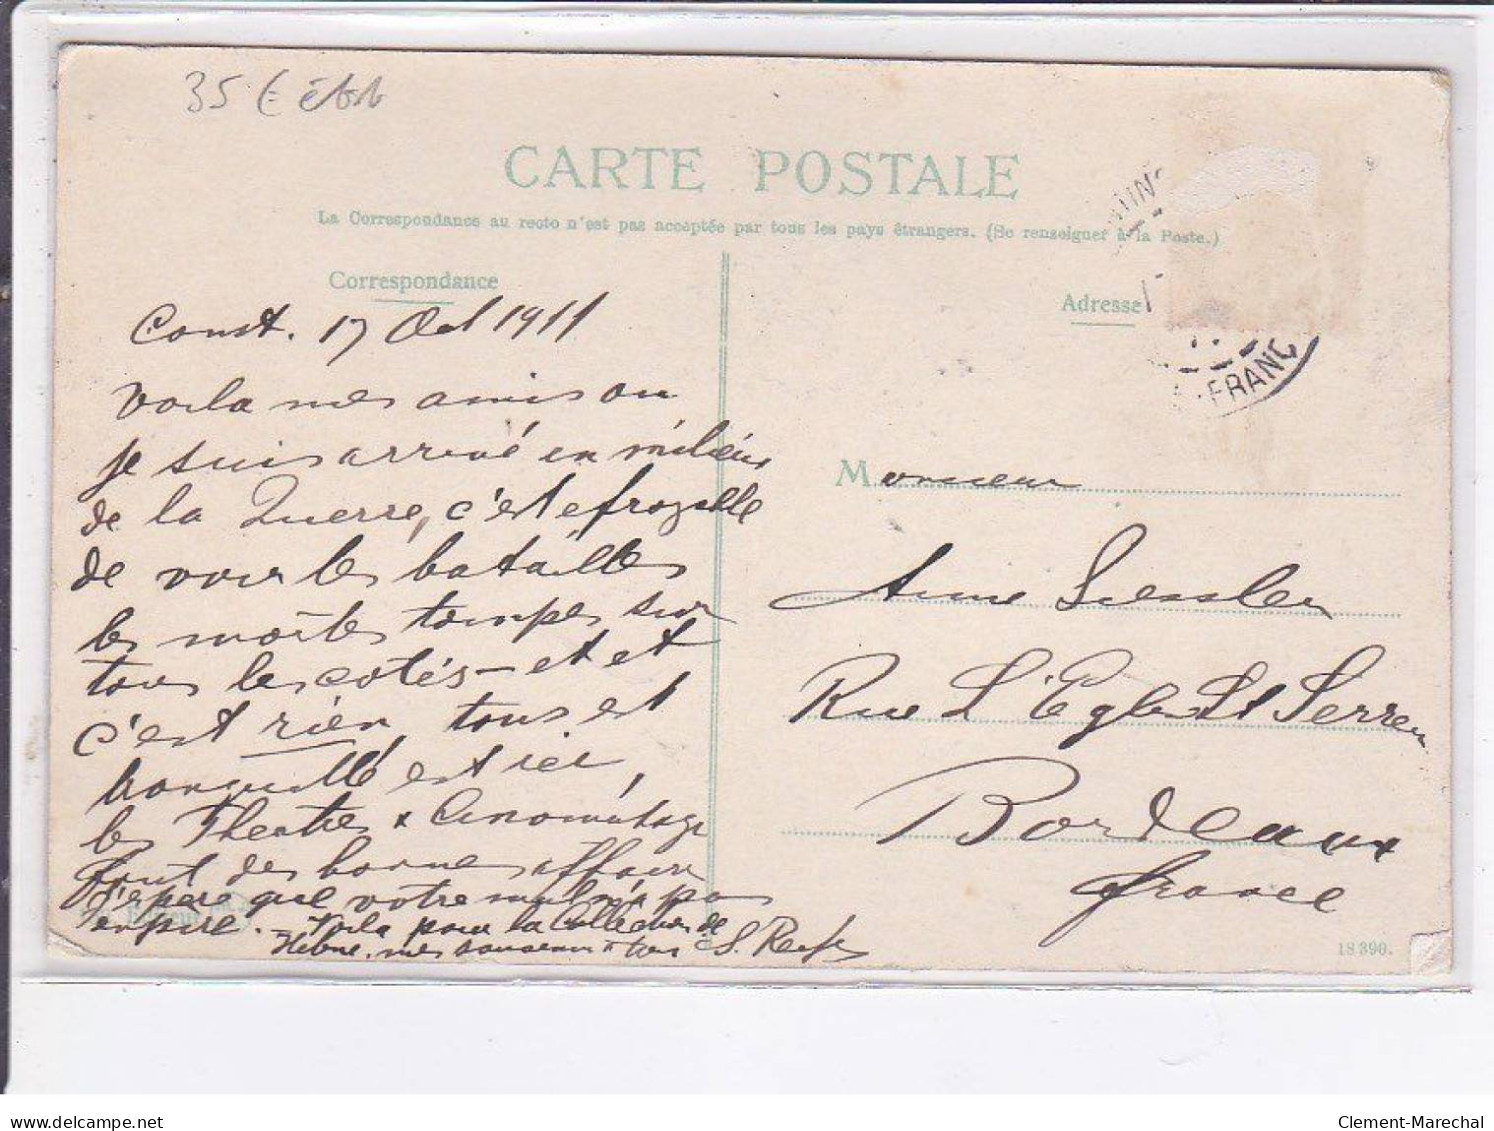 35 €
CARTE POSTALE
La Correspondance au recto n'est pas acceptée par tous les pays étrangers. (Se renseigner à la Poste.)
Correspondance
Const. 17 Oct 1911
Voila mes amis ou
je suis arrivé en milieu
de la Guerre, c'est efroyable
de voir les batailles
les morts tombés sur
tous les cotés – et et
c'est rien, tous est
tranquille est ici,
les Theatres &
font des bonnes affaires
J'espere que votre mul n'a pas
empire. – Voila pour la Collection de
mes souvenirs a tous S.
Adresse
FRANC
Monsieur
Rue L'Eglise St Serren
Bordeaux
france
18 390.
delcampe.net
Clement-Marechal